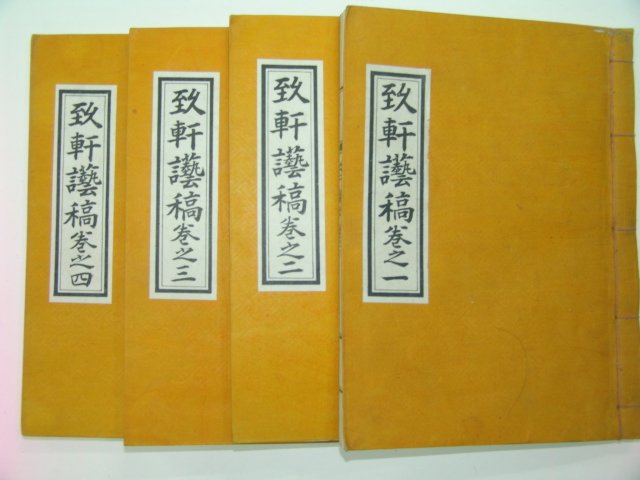 致軒讌稿卷之一
致軒讌稿卷之二
致軒讌稿卷之三
致軒讌稿卷之四